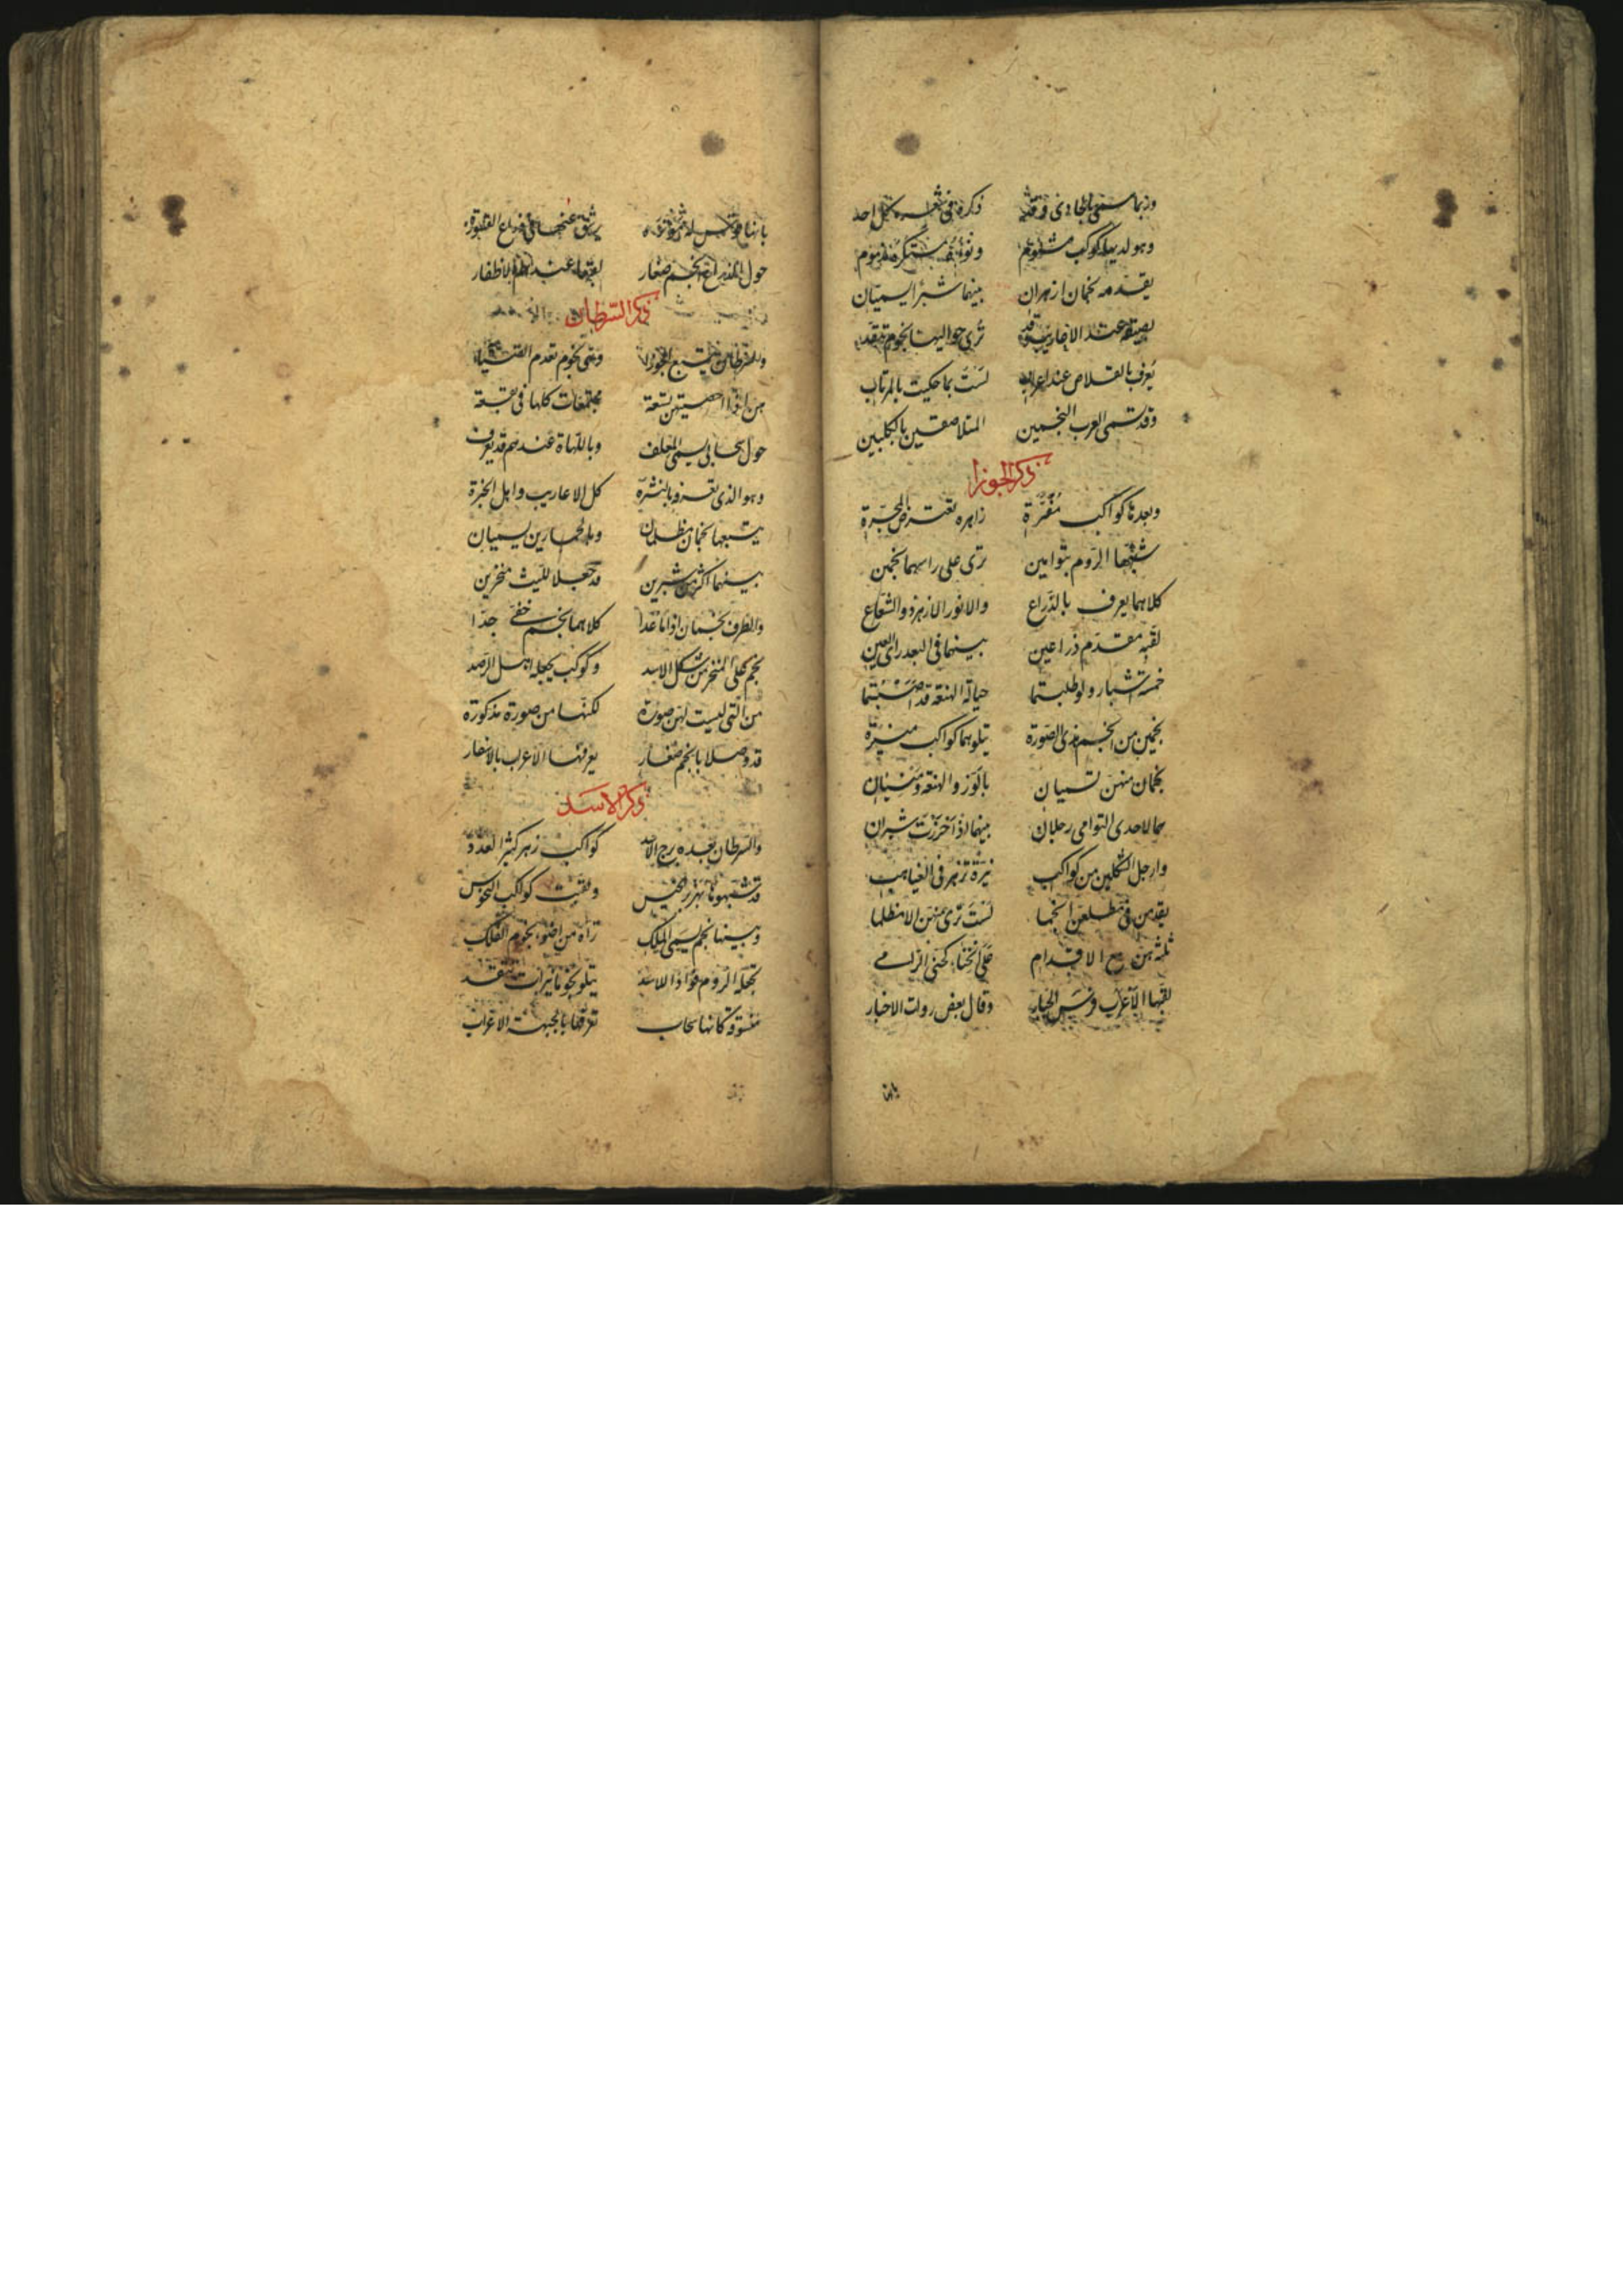 وربما سمي بالحادي وقد ذكره في شعره كل احد
وهو لديها كوكب مشئوم ونوءه مستكره مذموم
يقدمه نجمان ازهران بينهما شبر يسميان
ترى حواليها نجوم تتقد
يعرف بالقلاص عند اعراب لست بما حكيت بالمرتاب
وقد تسمى العرب النجمين المتلاصقين بالكلبين
ذكر الجوزا
وبعدها كواكب زاهره تعترض المجرة
شبهها الروم بتوامين ترى على راسهما نجمين
كلاهما يعرف بالذراع والانور الازهر ذو الشعاع
لقبه مقدم ذراعين بينهما في البعد راى العين
خمسة اشبار ولو طلبتما حيالة الهنعة قد اصبتما
نجمين من انجم ذي الصورة تتلوهما كواكب منيرة
نجمان منهن تسميان بالزر والهنعة
هما لاحدى التوامى رجلان بينهما اذا حزرت شبران
وارجل الشكلين من كواكب نيرة تزهر في الغياهب
يقدمن في مطلعهن انجما لست ترى منهن الا مظلما
ثلثة هن مع الاقدام على انحناء كحنى الرامي
لقبها الاعرب قوس الجبار وقال بعض روات الاخبار
بانها
بانها قوس
حول الذراع انجم صغار لقبها عندهم الاظفار
ذكر السرطان
والسرطان يتبع الجوزا وهي نجوم تقدم
هن اذا احصيتهن تسعة مجتمعات كلها في بقعة
حول سحابي يسمى المعلف وباللهاة عندهم قد يعرف
وهو الذي تعزوه بالنثرة كل الاعاريب واهل الخبرة
يتبعها نجمان مظلمان وبالحمارين يسميان
بينهما اكثر من شبرين قد جعلا لليث منخرين
والطرف نجمان اذا ما عدا كلاهما نجم خفي جدا
نجم على المنخر من شكل الاسد وكوكب يجهله اهل الرصد
من التي ليست لهن صورة لكنها من صورة مذكورة
قد وصلا بانجم صغار يعرفها الاعرب بالاشفار
ذكر الاسد
والسرطان بعده برج الاسد كواكب زهر كثير العدد
ولقبت كواكب
وبينها نجم يسمى الملك تراه من اضوء نجوم الفلك
تجعله الروم فؤادا للاسد يتلو نجوما نيرات تتقد
منسوقة كانها سحاب تعرفها بالجبهة الاعراب